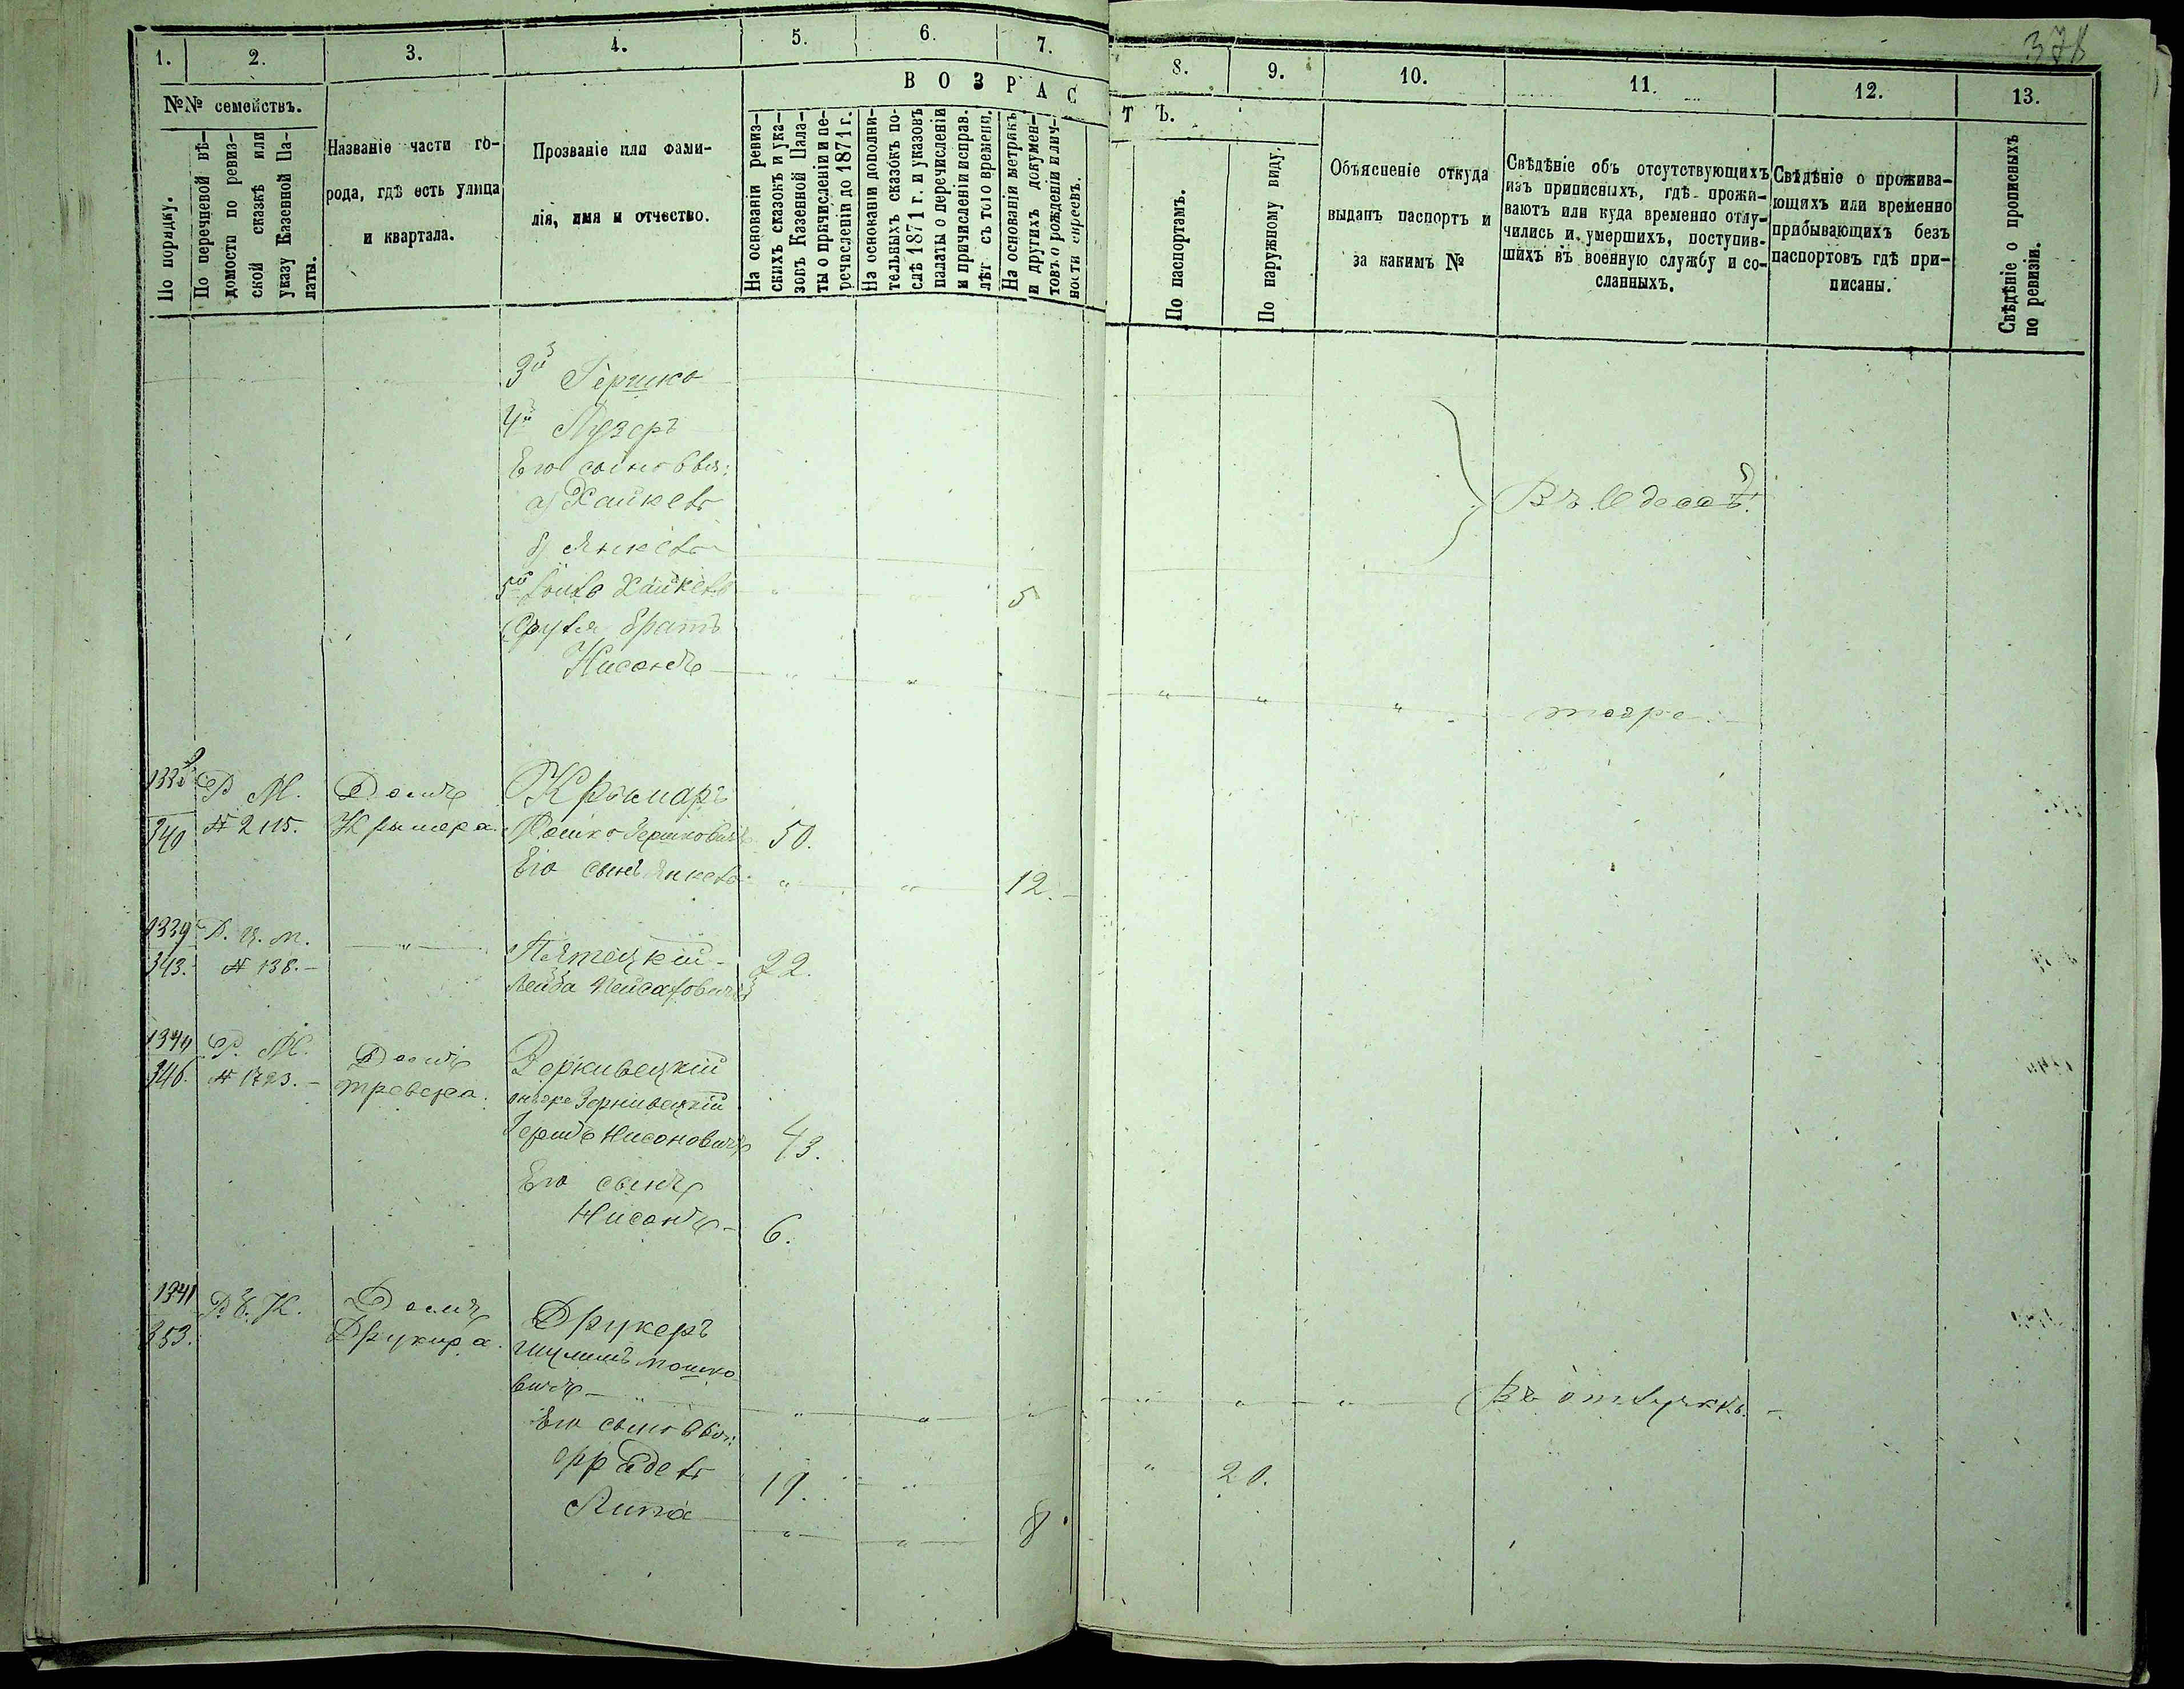 378
1. 2. 3. 4. 5. 6. 7. 8. 9. 10. 11. 12. 13.
№№ семействъ.
По порядку.
По перечневой вѣ-
домости по ревиз-
ской сказкѣ или
указу Казенной Па-
латы.
Названіе части го-
рода, гдѣ есть улица
и квартала.
Прозваніе или фами-
лія, имя и отчество.
ВОЗРАС
ТЪ.
На основаніи ревиз-
скихъ сказокъ и ука-
зовъ Казенной Пала-
ты о причисленіи и пе-
речисленіи до 1871 г.
На основаніи дополни-
тельныхъ сказокъ по-
слѣ 1871 г. и указовъ
палаты о перечисленіи
и причисленіи исправ.
лѣт съ того времени.
На основаніи метрикъ
и другихъ докумен-
товъ о рожденіи и лич-
ности евреевъ.
По паспортамъ.
По наружному виду.
Объясненіе откуда
выданъ паспортъ и
за какимъ №
Свѣдѣніе объ отсутствующихъ
изъ приписныхъ, гдѣ прожи-
ваютъ или куда временно отлу-
чились и умершихъ, поступив-
шихъ въ военную службу и со-
сланныхъ.
Свѣдѣніе о прожива-
ющихъ или временно
прибывающихъ безъ
паспортовъ гдѣ при-
писаны.
Свѣдѣніе о прописныхъ
по ревизіи.
3й Гершко
4й Лузеръ
Его сыновья:
а) Хаикель
б) Янкель
Въ Одессѣ.
5й Хаикель 5
братъ
Нисонъ
1338 Р. М. Домъ Крымаръ
340 № 2115. Крымера. Мошко Гершковичъ 50.
Его сынъ Янкель 12.
1339 Д. К. М. Пятецкій
343. № 138. Лейба Пейсаховичъ 22.
1340 Р. М. Домъ Зеркивецкій
346. № 1723. Зернивецкій
Гершъ Нисоновичъ 43.
Его сынъ
Нисонъ 6.
1341 Домъ Друкеръ
353. Друкира. Шулимъ Мошко
вичъ Въ отлучкѣ.
Его сыновья:
19. 20.
Липа 8